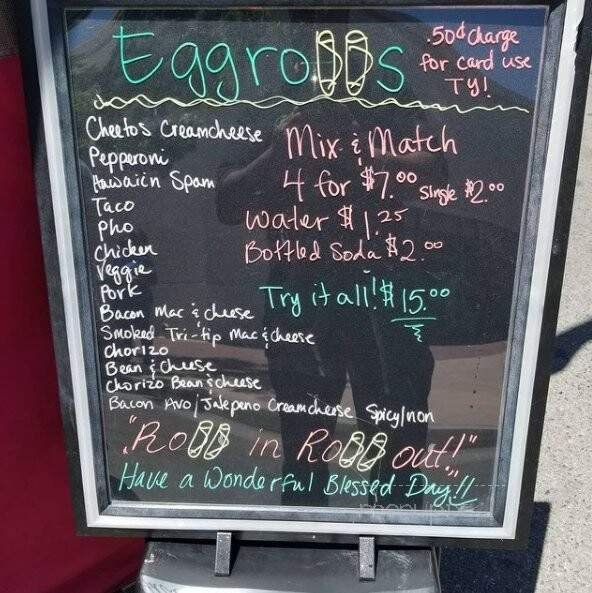 Eggrolls
.50¢ Charge
for card use
TY!
Cheetos Creamcheese
Pepperoni
Hawaiin Spam
Taco
Pho
Chicken
Veggie
Pork
Bacon Mac & cheese
Smoked Tri-tip Mac & cheese
Chorizo
Bean & Cheese
Chorizo Bean & cheese
Bacon Avo/Jalepeno Creamcheese Spicy/non
Mix & Match
4 for $7.00 Single $2.00
water $1.25
Bottled Soda $2.00
Try it all! $15.00
"Roll in Roll out!"
Have a Wonderful Blessed Day!!